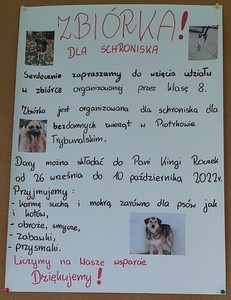 ZBIÓRKA!
DLA SCHRONISKA
Serdecznie zapraszamy do wzięcia udziału
w zbiórce organizowanej przez klasę 8.
Zbiórka jest organizowana dla schroniska dla
bezdomnych zwierząt w Piotrkowie
Trybunalskim.
Dary można składać do Pani Kingi
od 26 września do 10 października 2022r.
Przyjmujemy:
- karmę suchą i mokrą zarówno dla psów jak
i kotów,
- obroże, smycze,
- zabawki,
- przysmaki.
Liczymy na Wasze wsparcie
Dziękujemy!